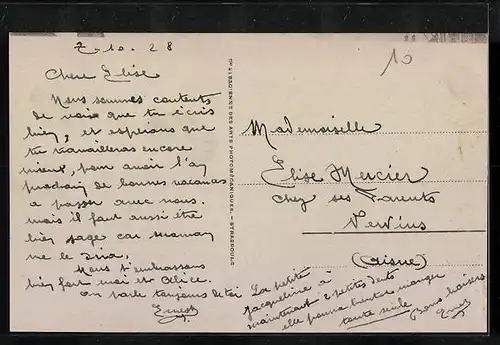 2-10-28
Chere Elise
Nous sommes contents
de voir que tu écris
bien, et espérons que
tu travailleras encore
mieux, pour avoir l'an
prochain de bonnes vacances
a passer avec nous.
mais il faut aussi être
bien sage car maman
me le dira.
Nous t'embrassons
bien fort moi et Alice.
on parle toujours de toi
Ernest
Cie ALSACIENNE DES ARTS PHOTOMÉCANIQUES - STRASBOURG
10
Mademoiselle
Élise Mercier
chez ses Parents
Vervins
(Aisne)
La petite
Jacqueline à
maintenant 2 petits dents
elle pourra bientot manger
toute seule
Bons baisers